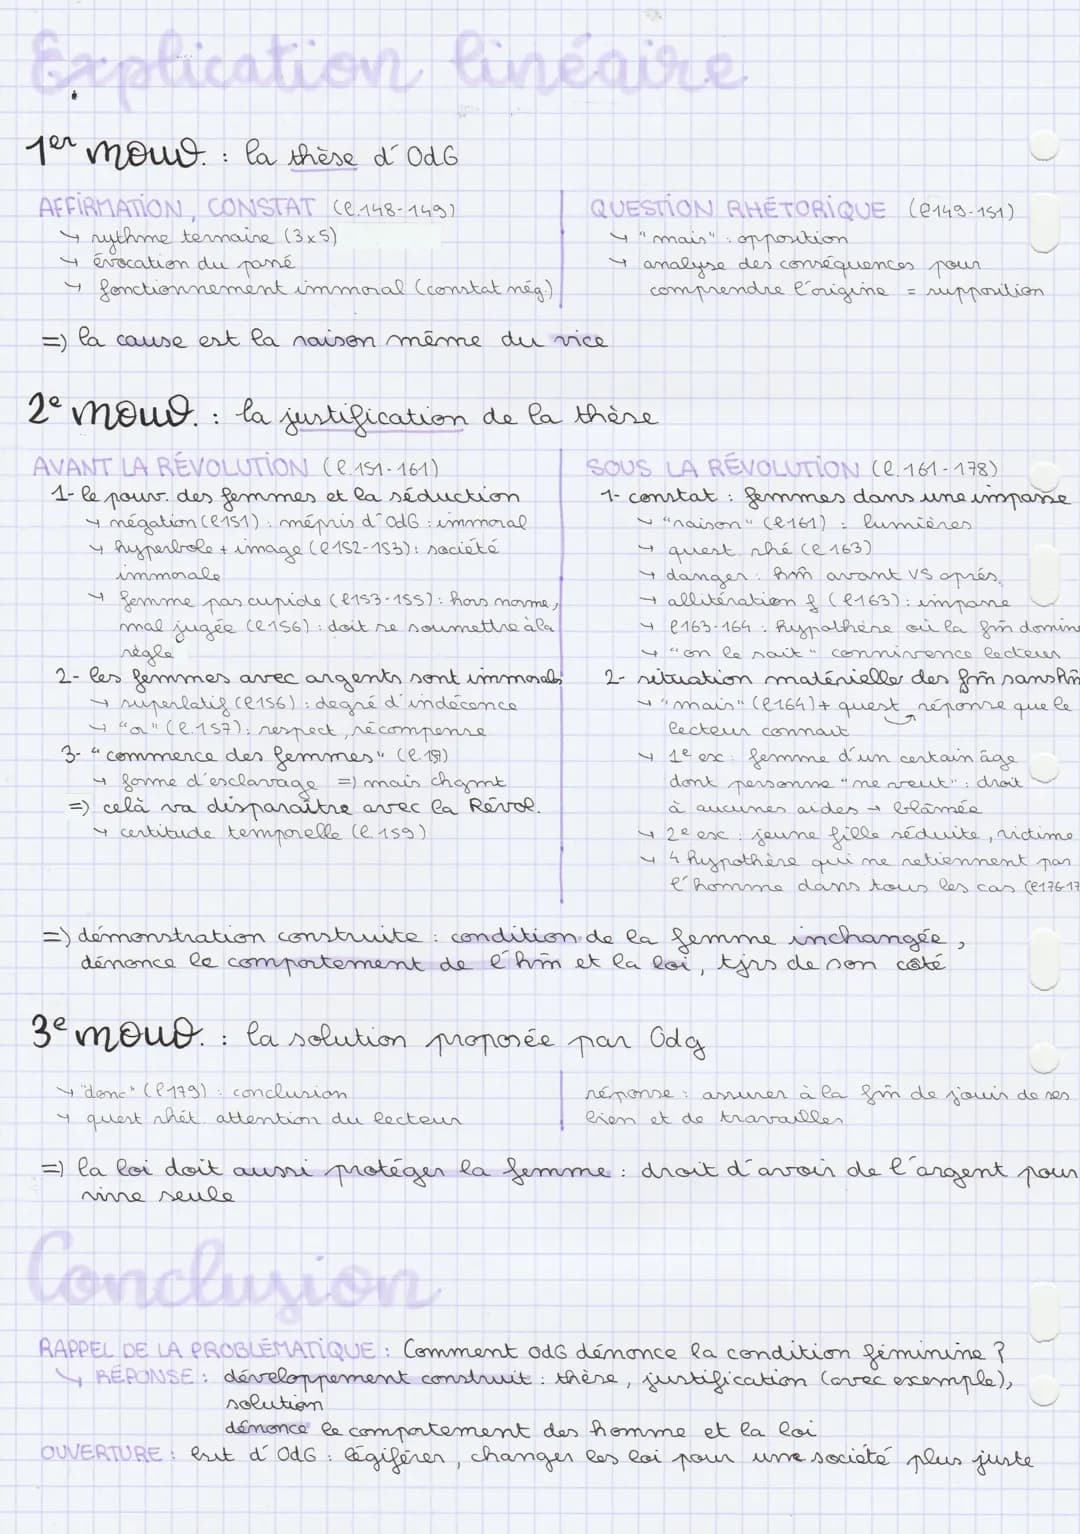 Explication linéaire
1er mouv. : la thèse d'OdG
AFFIRMATION, CONSTAT (l.148-149)
↳ rythme ternaire (3x5)
↳ évocation du passé
↳ fonctionnement immoral (constat nég.)
QUESTION RHÉTORIQUE (l149-151)
↳ "mais" : opposition
↳ analyse des conséquences pour
comprendre l'origine = supposition
=> la cause est la raison même du vice
2e mouv. : la justification de la thèse
AVANT LA RÉVOLUTION (l.151-161)
1- le pouv. des femmes et la séduction
↳ négation (l151) : mépris d'OdG : immoral
↳ hyperbole + image (l152-153) : société
immorale
↳ femme pas cupide (l153-155) : hors norme,
mal jugée (l156) : doit se soumettre à la
règle
2- les femmes avec argents sont immorals
↳ superlatif (l156) : degré d'indécence
↳ "or" (l.157) : respect, récompense
3- "commerce des femmes" (l.157)
↳ forme d'esclavage => mais chgmt
=> celà va disparaître avec la Révol.
↳ certitude temporelle (l.159)
SOUS LA RÉVOLUTION (l.161-178)
1- constat : femmes dans une impasse
↳ "raison" (l161) : lumières
↳ quest. rhé (l163)
↳ danger : hm avant VS après
↳ allitération f (l163) : impasse
↳ l163-164 : hypothèse où la fm domine
↳ "on le sait" connivence lecteur
2- situation matérielle des fm sans hm
↳ "mais" (l164) + quest réponse que le
lecteur connait
↳ 1e ex : femme d'un certain âge
dont personne "ne veut" : droit
à aucunes aides → blâmée
↳ 2e ex : jeune fille séduite, victime
↳ 4 hypothèse qui ne retiennent pas
l'homme dans tous les cas (l176-17
=> démonstration construite : condition de la femme inchangée,
dénonce le comportement de l'hm et la loi, tjrs de son côté
3e mouv. : la solution proposée par Odg
↳ "donc" (l179) : conclusion
↳ quest rhét. attention du lecteur
réponse : assurer à la fm de jouir de ses
bien et de travailler
=> la loi doit aussi protéger la femme : droit d'avoir de l'argent pour
vivre seule
Conclusion
RAPPEL DE LA PROBLÉMATIQUE : Comment OdG dénonce la condition féminine ?
↳ RÉPONSE : développement construit : thèse, justification (avec exemple),
solution
dénonce le comportement des homme et la loi
OUVERTURE : but d'OdG : légiférer, changer les loi pour une société plus juste